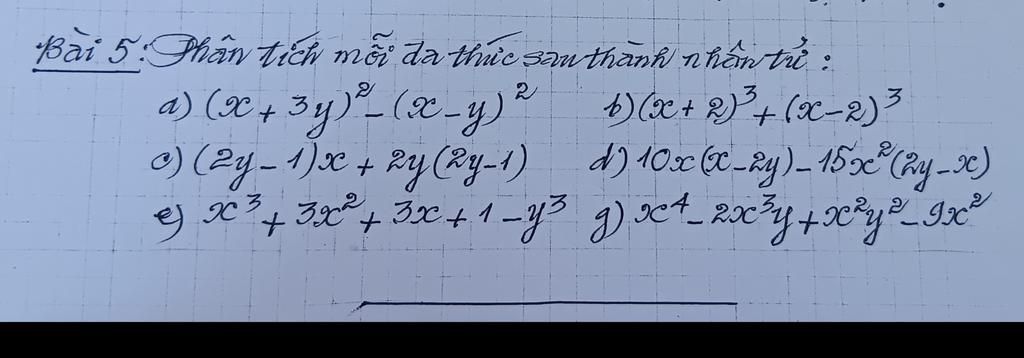 Bài 5: Phân tích mỗi đa thức sau thành nhân tử:
a) (x + 3y)² - (x - y)² b) (x + 2)³ + (x - 2)³
c) (2y - 1)x + 2y(2y - 1) d) 10x(x - 2y) - 15x²(2y - x)
e) x³ + 3x² + 3x + 1 - y³ g) x⁴ - 2x³y + x²y² - 9x²